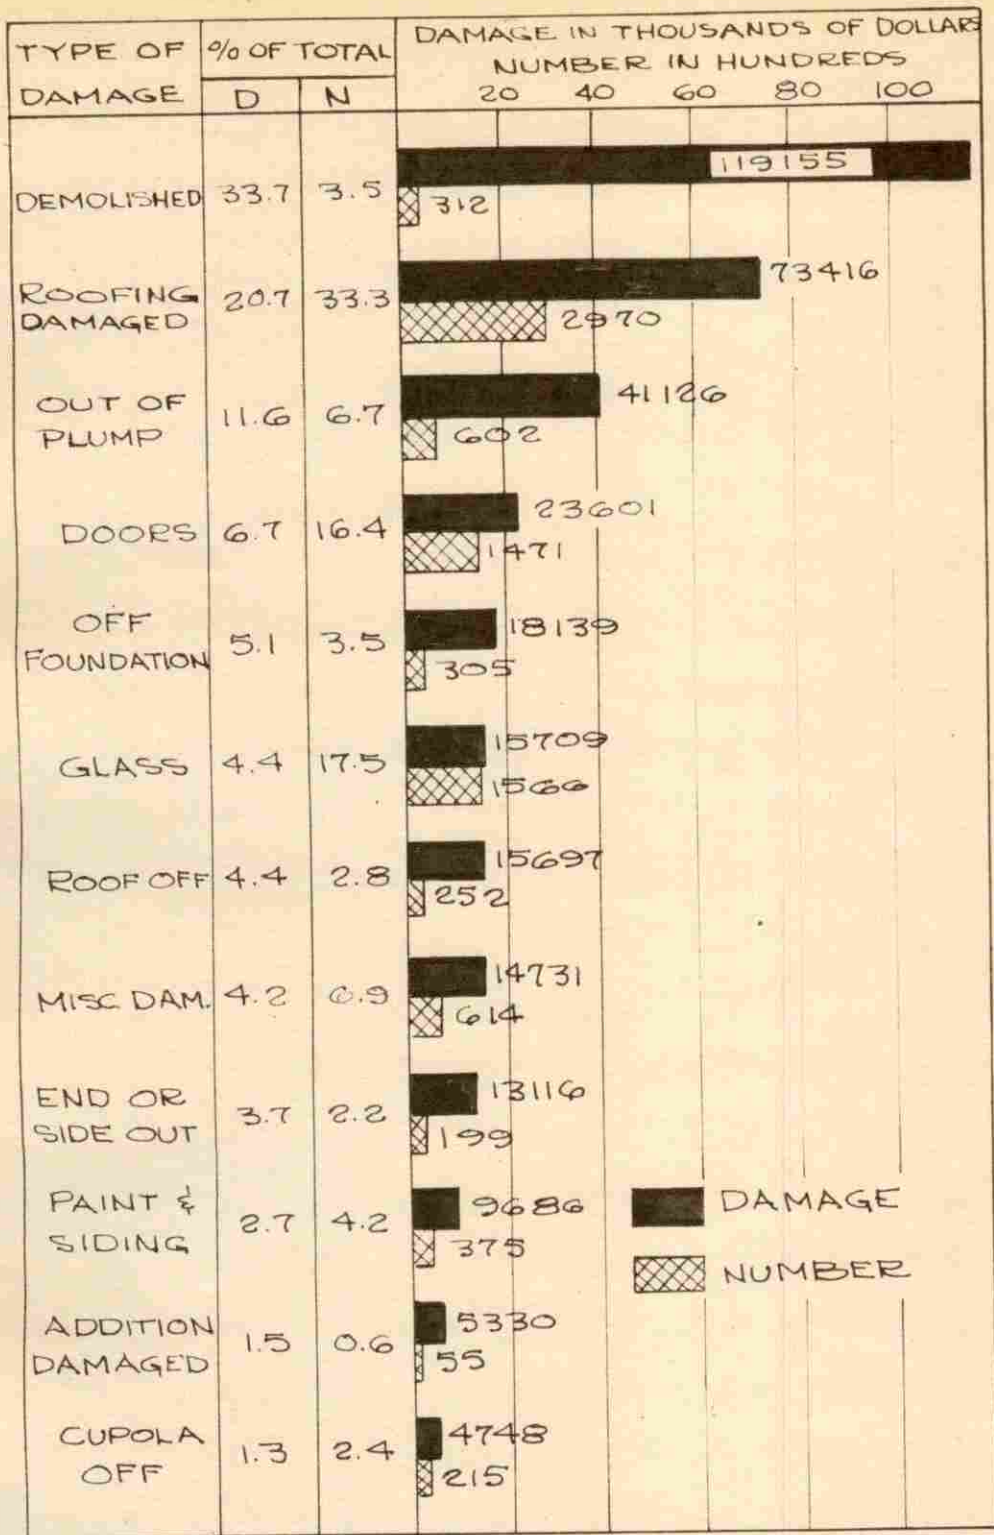 TYPE OF DAMAGE
% OF TOTAL
D N
DAMAGE IN THOUSANDS OF DOLLARS
NUMBER IN HUNDREDS
20 40 60 80 100
DEMOLISHED 33.7 3.5 119155
312
ROOFING DAMAGED 20.7 33.3 73416
2970
OUT OF PLUMP 11.6 6.7 41126
602
DOORS 6.7 16.4 23601
1471
OFF FOUNDATION 5.1 3.5 18139
305
GLASS 4.4 17.5 15709
1566
ROOF OFF 4.4 2.8 15697
252
MISC DAM. 4.2 6.9 14731
614
END OR SIDE OUT 3.7 2.2 13116
199
PAINT & SIDING 2.7 4.2 9686
375
DAMAGE
NUMBER
ADDITION DAMAGED 1.5 0.6 5330
55
CUPOLA OFF 1.3 2.4 4748
215